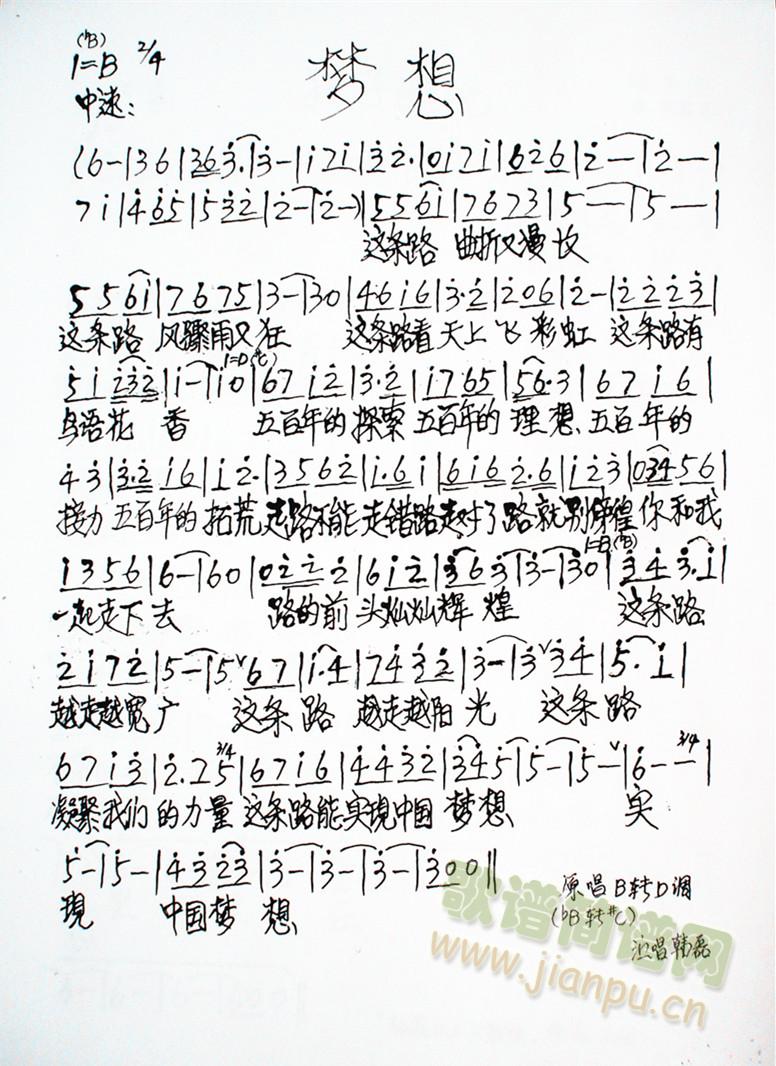 (bB)
1=B 2/4
梦想
中速:
(6-|36|363.|3-|i7i|32.|0i7i|626|2-|2-|
7i|465|532|2-|2-)|556i|7673|5-|5-|
这条路 曲折又漫长
556i|7675|3-|30|46i6|3.2|206|2-|2223|
这条路 风骤雨又狂 这条路看天上飞彩虹 这条路有
1=D(#C)
5i232|i-|i0|67i2|3.2|i765|56.3|67i6|
鸟语花香 五百年的探索 五百年的理想 五百年的
43|3.2i6|i2.|3562|i.6i|6i62.6|i23|03456|
接力 五百年的拓荒 走路不能走错路走对了路就别彷徨 你和我
1=B(bB)
i356|6-|60|0222|6i2|363|3-|30|343.i|
一起走下去 路的前头灿灿辉煌 这条路
2i72|5-|5∨67|i.4|7432|3-|3∨34|5.i|
越走越宽广 这条路 越走越阳光 这条路
3/4
67i3|2.25|67i6|4432|345|5-|5-∨|6--|
凝聚我们的力量 这条路能实现中国梦想 实
5-|5-|4323|3-|3-|3-|300||
现 中国梦想
原唱B转D调
(bB转#C)
演唱韩磊
歌谱简谱网
www.jianpu.cn